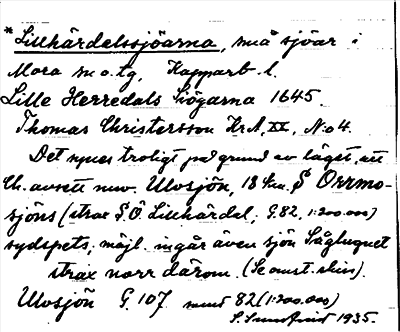 *Lillhärdelssjöarna, små sjöar i
Mora sn o. tg, Kopparb. l.
Lille Herredals Siögarna 1645.
Thomas Christersson Kr.A, XX, N:o 4.
Det synes troligt på grund av läget, att
Ch. avsett nuv. Ulvsjön, 18 km. S Orrmo-
sjöns (strax S.Ö Lillhärdal, G.82, 1:200.000)
sydspets; möjl. ingår även sjön Sågluguet
strax norr därom. (Se omst. skiss).
Ulvsjön G. 107 samt 82 (1:200.000)
1935.